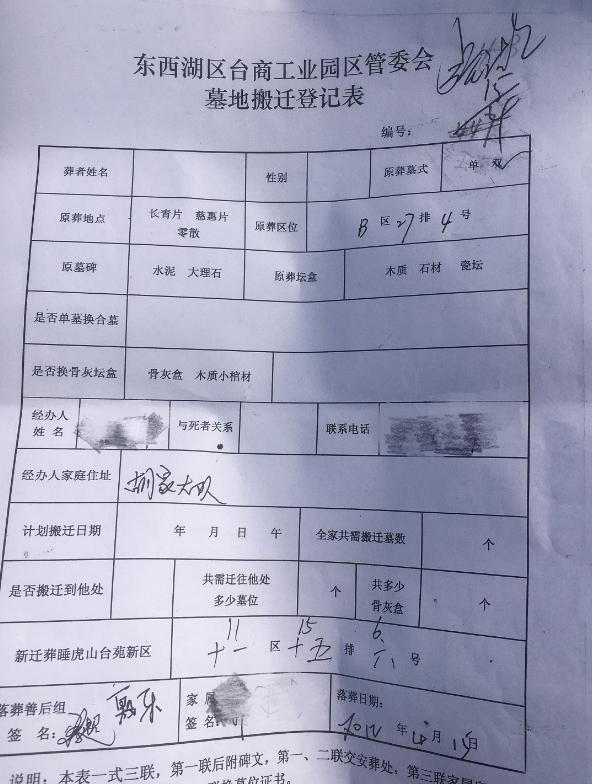 东西湖区台商工业园区管委会
墓地搬迁登记表
编号：
葬者姓名 性别 原葬墓式 单 双
原葬地点 长青片 慈惠片 零散 原葬区位 B 区 27 排 4 号
原墓碑 水泥 大理石 原葬坛盒 木质 石材 瓷坛
是否单墓换合墓
是否换骨灰坛盒 骨灰盒 木质小棺材
经办人姓名 与死者关系 联系电话
经办人家庭住址 胡家大队
计划搬迁日期 年 月 日 午 全家共需搬迁墓数 个
是否搬迁到他处 共需迁往他处多少墓位 个 共多少骨灰盒 个
11 15 6
新迁葬睡虎山台苑新区 十一 区 十五 排 六 号
落葬善后组签 名： 家 属签名： 落葬日期：
2012 年 4 月 15 日
说明：本表一式三联，第一联后附碑文，第一、二联交安葬处，第三联家属
换墓位证书。